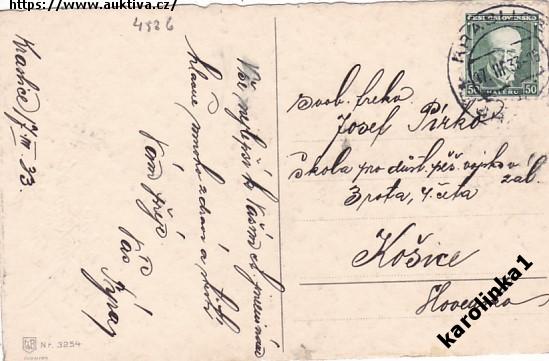 https://www.auktiva.cz/
4926
Kraslice 17/III 33.
Vše nejlepší k Vašim ct. jmeninám
hlavně mnoho zdraví a
Vám přeje
Vás
ČESKOSLOVENSKO
50 HALÉŘŮ 50
KRASLICE
17.III.33
svob. frekv.
Josef Pirko
škola pro důst. pěš. vojska v zál.
3 rota, 4. četa
Košice
Slovensko
Nr. 3254
karolinka1